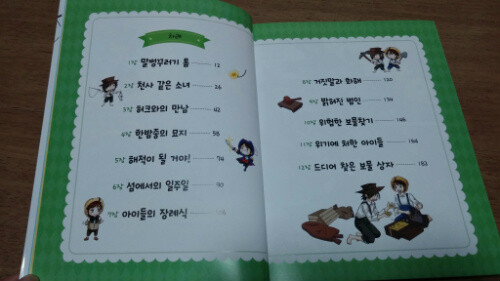 차례
1장 말썽꾸러기 톰 12
2장 천사 같은 소녀 26
3장 허크와의 만남 42
4장 한밤중의 묘지 58
5장 해적이 될 거야! 74
6장 섬에서의 일주일 90
7장 아이들의 장례식
8장 거짓말과 화해 120
9장 밝혀진 범인 134
10장 위험한 보물찾기 146
11장 위기에 처한 아이들 164
12장 드디어 찾은 보물 상자 182